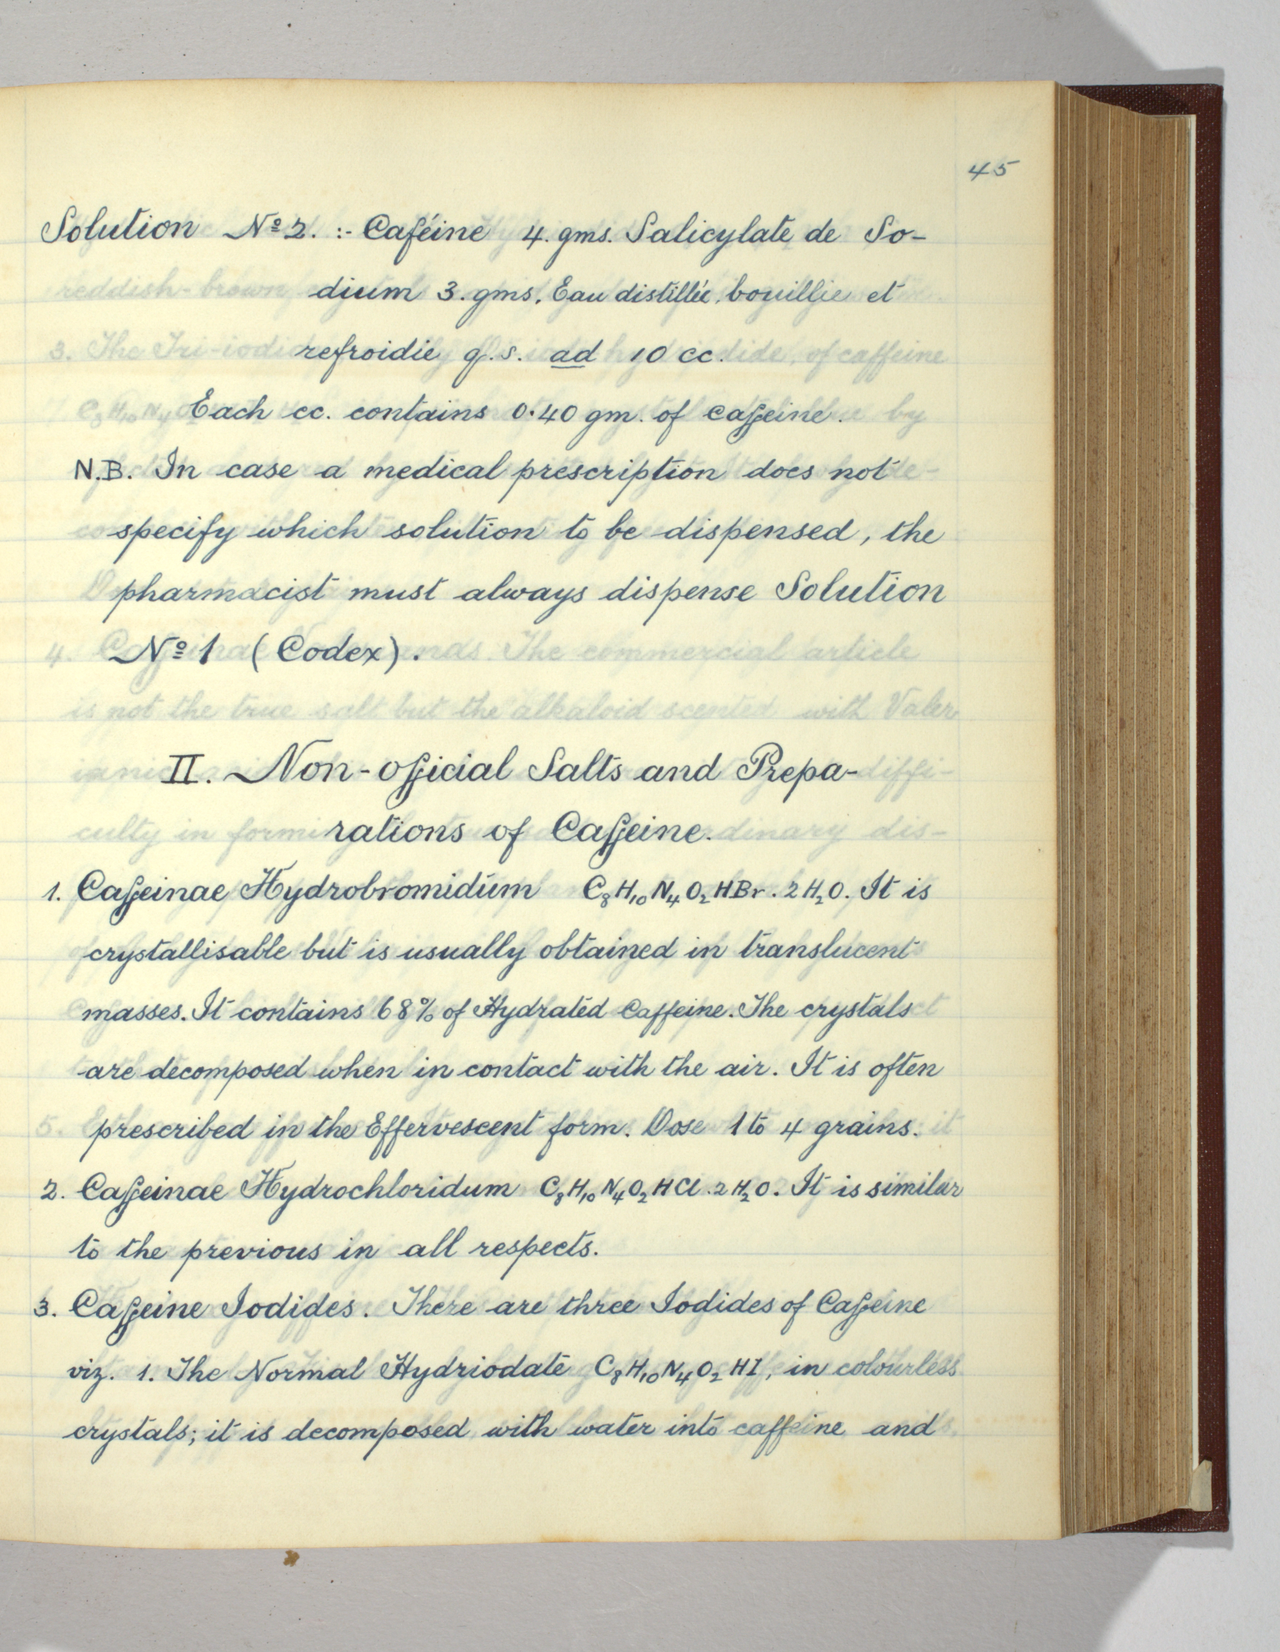 45
Solution Nº 2. :- Caféine 4. gms. Salicylate de So-
dium 3. gms. Eau distillée, bouillie et
refroidie q.s. ad 10 cc.
Each cc. contains 0.40 gm. of caffeine.
N.B. In case a medical prescription does not
specify which solution to be dispensed, the
pharmacist must always dispense Solution
Nº 1 (Codex).
II. Non-official Salts and Prepa-
rations of Caffeine.
1. Caffeinae Hydrobromidum C₈H₁₀N₄O₂HBr.2H₂O. It is
crystallisable but is usually obtained in translucent
masses. It contains 68% of Hydrated Caffeine. The crystals
are decomposed when in contact with the air. It is often
prescribed in the Effervescent form. Dose 1 to 4 grains.
2. Caffeinae Hydrochloridum C₈H₁₀N₄O₂HCl.2H₂O. It is similar
to the previous in all respects.
3. Caffeine Iodides. There are three Iodides of Caffeine
viz. 1. The Normal Hydriodate C₈H₁₀N₄O₂HI, in colourless
crystals; it is decomposed with water into caffeine and